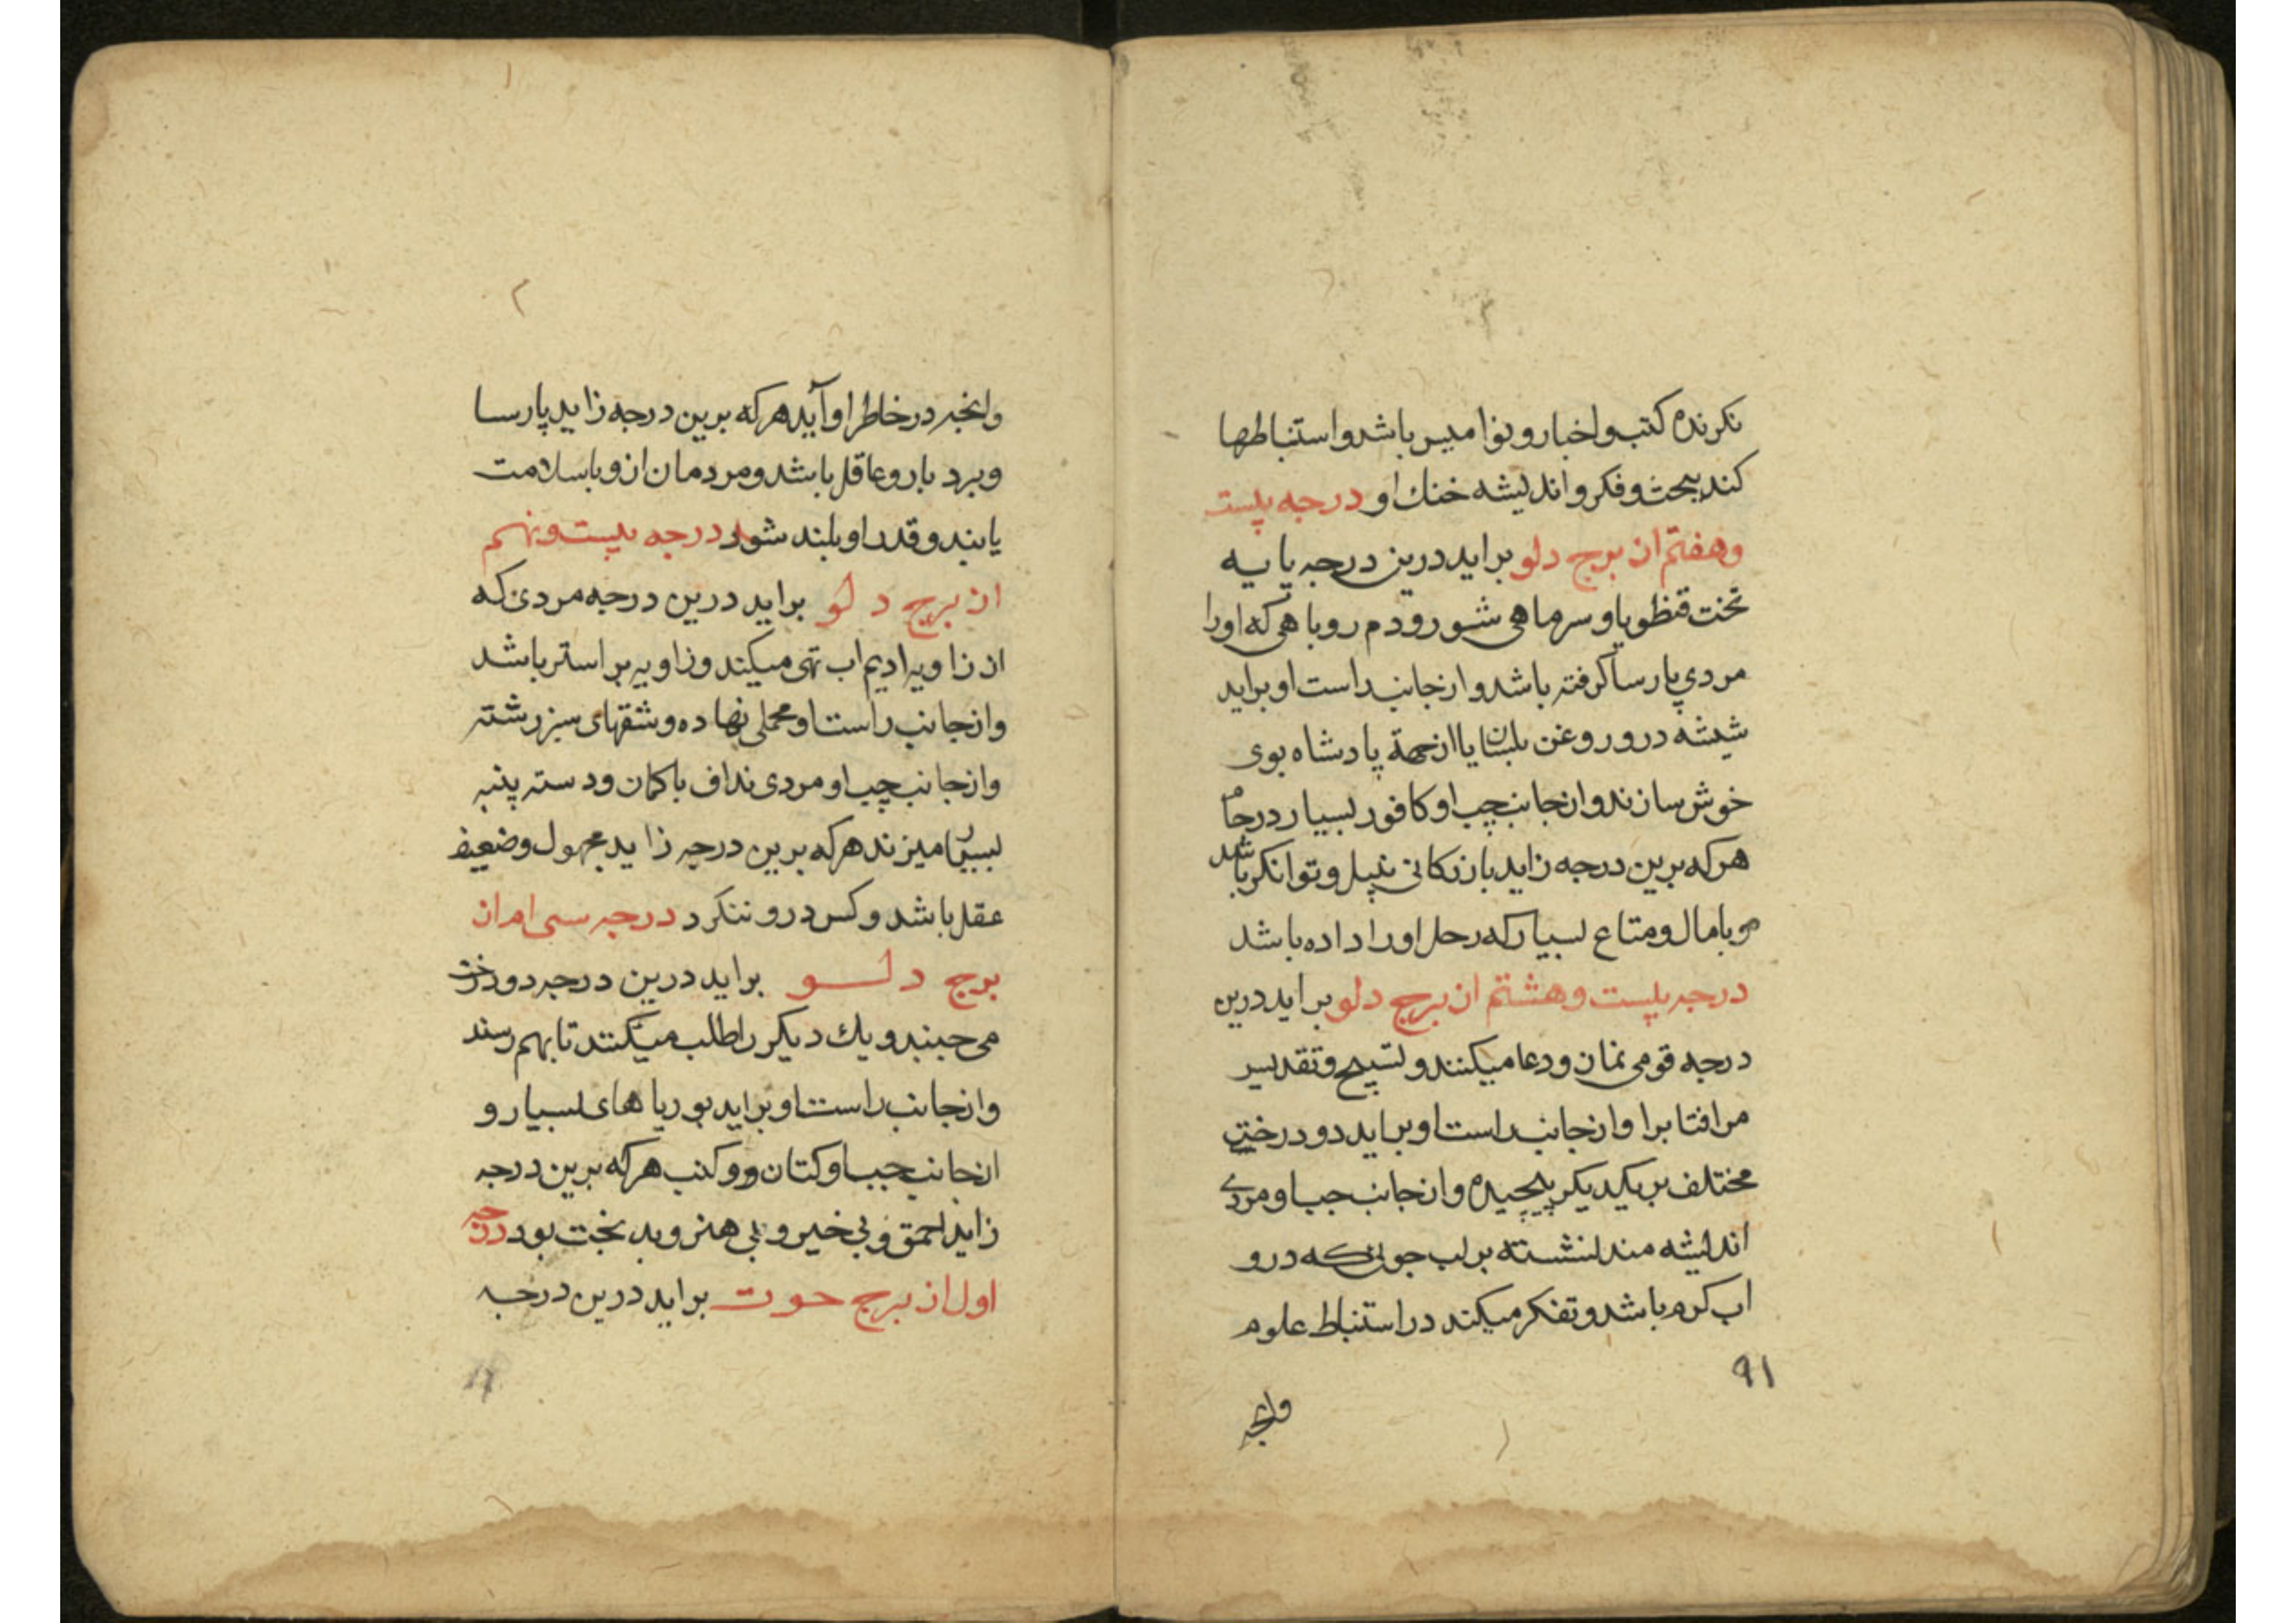 نکرنده کتب و اخبار و نوامیس باشد و استنباطها
کند ببحث و فکر و اندیشه خنك او درجه بیست
و هفتم از برج دلو براید درین درجه پایه
تخت و سر ماهی شور و دم روباهی که او را
مردی پارسا کرفته باشد و از جانب راست او براید
شیشه درو روغن بلسان یا از جهة پادشاه بوی
خوش سازند و از جانب چپ او کافور بسیار در جام
هر که برین درجه زاید بازرکانی نبیل و توانکر باشد
و با مال و متاع بسیار که زحل او را داده باشد
درجه بیست و هشتم از برج دلو براید درین
درجه قومی نماز و دعا میکنند و تسبیح و تقدیس
مر افتاب را و از جانب راست او براید دو درختی
مختلف بر یکدیکر پیچیده و از جانب چپ او مردی
اندیشه مند نشسته بر لب جوی که درو
اب کرم باشد و تفکر میکند در استنباط علوم
۹۱
وانچه
وانچه در خاطر او آید هر که برین درجه زاید پارسا
و بردبار و عاقل باشد و مردمان ازو با سلامت
یابند و قدر او بلند شود درجه بیست و نهم
از برج دلو براید درین درجه مردی که
از زاویه ادیم اب تهی میکند و زاویه بر استر باشد
و از جانب راست او محملی نهاده و شقهای سبز رشته
و از جانب چپ او مردی نداف با کمان و دسته پنبه
بسیار میزند هر که برین درجه زاید مجهول و ضعیف
عقل باشد و کس درو ننکرد درجه سی ام از
برج دلو براید درین درجه دو درخت
می جنبند و یك دیکر را طلب میکنند تا بهم رسند
و از جانب راست او براید بوریاهای بسیار و
از جانب چپ او کتان و کنب هر که برین درجه
زاید احمق و بی خیر و بی هنر و بدبخت بود درجه
اول از برج حوت براید درین درجه